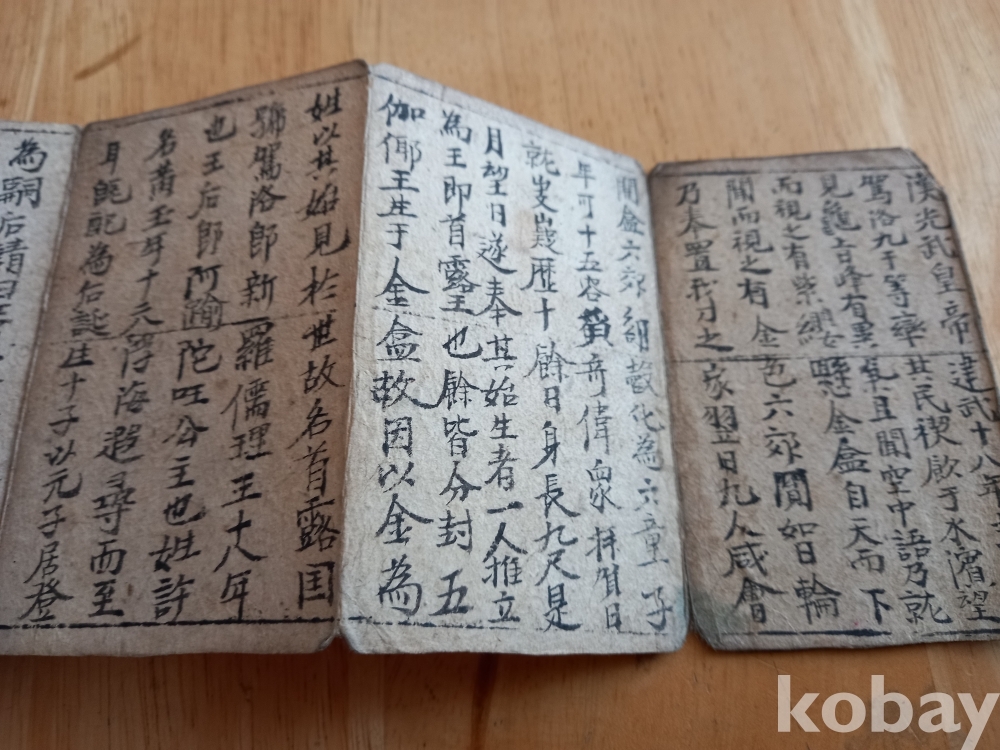 漢光武皇帝建武十八年
駕洛九干等率其民禊飮于水濱望
見龜峰有異氣且聞空中語乃就
而視之有紫纓懸金盒自天而下
開而視之有金色六卵圓如日輪
乃奉置我刀之家翌日九人咸會
開盒六卵卻殼化為六童子
年可十五容貌奇偉衆拜賀日
就岐嶷歴十餘日身長九尺是
月望日遂奉其始生者一人推立
為王即首露王也餘皆分封五
伽倻王生于金盒故因以金為
姓以其始見於世故名首露国
號駕洛卽新羅儒理王十八年
也王后卽阿踰陀国公主也姓許
名黃玉年十六浮海遐尋而至
耳配為后誕生十子以元子居登
為嗣后請曰
kobay